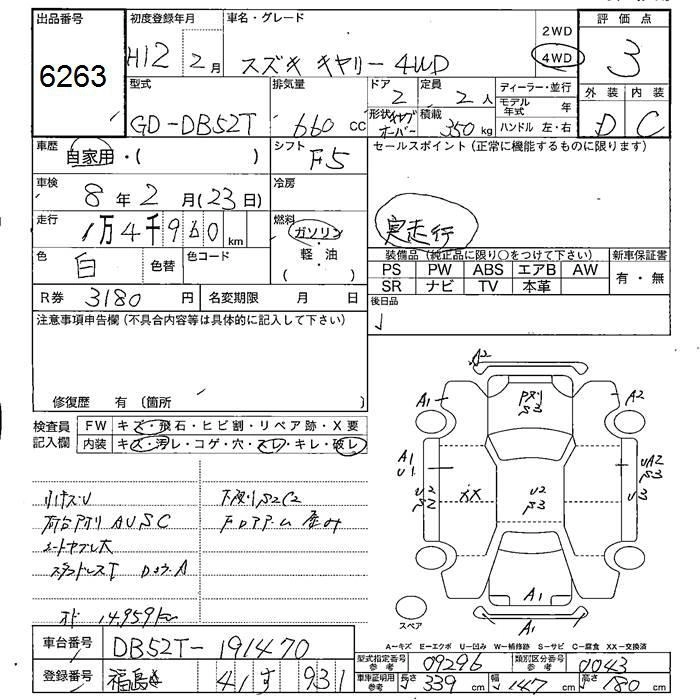 出品番号
6263
初度登録年月
H12 2月
車名・グレード
スズキ キャリー 4WD
2WD
4WD
評価点
3
外装 内装
D C
型式
GD-DB52T
排気量
660 cc
ドア
2
定員
2人
形状
積載
350kg
ディーラー・並行
モデル年式 年
ハンドル 左・右
車歴
自家用・( )
シフト
F5
セールスポイント (正常に機能するものに限ります)
実走行
車検
8年2月(23日)
冷房
走行
1万4千960km
燃料
ガソリン
・軽・油
( )
色
白
色替
色コード
装備品 (純正品に限り○をつけて下さい)
新車保証書
PS PW ABS エアB AW
SR ナビ TV 本革
有・無
R券 3180円
名変期限 月 日
後日品
注意事項申告欄 (不具合内容等は具体的に記入して下さい)
修復歴 有 (箇所 )
検査員
記入欄
FW キズ・飛石・ヒビ割・リペア跡・X要
内装 キズ・汚レ・コゲ・穴・スレ・キレ・破レ
小キズ・U
荷台アオリ AUSC
シートヤブレ大
下廻りS2C2
メーター 14,959km
A2
A1
A2
S3
A1
U1
U2
S2
XX
U2
S3
UA2
S3
U3
A1
A1
スペア
A―キズ E―エクボ U―凹み W―補修跡 S―サビ C―腐食 XX―交換済
車台番号
DB52T-191470
登録番号
福島 41 す 931
型式指定番号
参考
09296
類別区分番号
参考
0043
車車証明用
参考
長さ 339 cm
幅 147 cm
高さ 180 cm